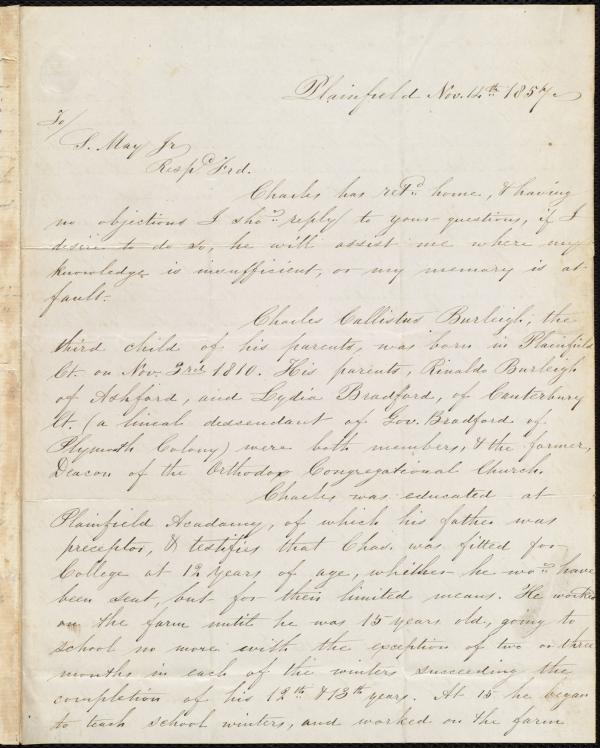 Plainfield Nov. 14th 1857
To/
S. May Jr
Respd. Frd.
Charles has retd. home, & having
no objections I shod. reply to your questions, if I
desire to do so, he will assist me where my
knowledge is insufficient, or my memory is at
fault.
Charles Callistus Burleigh, the
third child of his parents, was born in Plainfield
Ct. on Nov. 3rd 1810. His parents, Rinaldo Burleigh
of Ashford, and Lydia Bradford, of Canterbury
Ct. (a lineal descendant of Gov. Bradford of
Plymouth Colony) were both members, & the former,
Deacon of the Orthodox Congregational Church.
Charles was educated at
Plainfield Acadamy, of which his father was
preceptor, & testifies that Chas. was fitted for
College at 12 years of age, whither he wod. have
been sent, but for their limited means. He worked
on the farm until he was 15 years old, going to
school no more with the exception of two or three
months in each of the winters succeeding the
completion of his 12th & 13th years. At 15 he began
to teach school winters, and worked on the farm